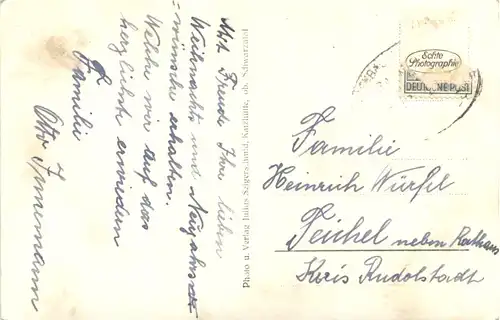 Mit Freude Ihre lieben
Weihnachts und Neujahrs
=wünsche erhalten.
Welche wir auf das
herzlichste erwiedern
Familie
Otto Jnnemann
Photo u. Verlag Julius Sägerschmid, Katzhütte, ob. Schwarzatal
Echte
Photographie
DEUTSCHE POST
Familie
Heinrich Würfel
Teichel neben Rathaus
Kreis Rudolstadt